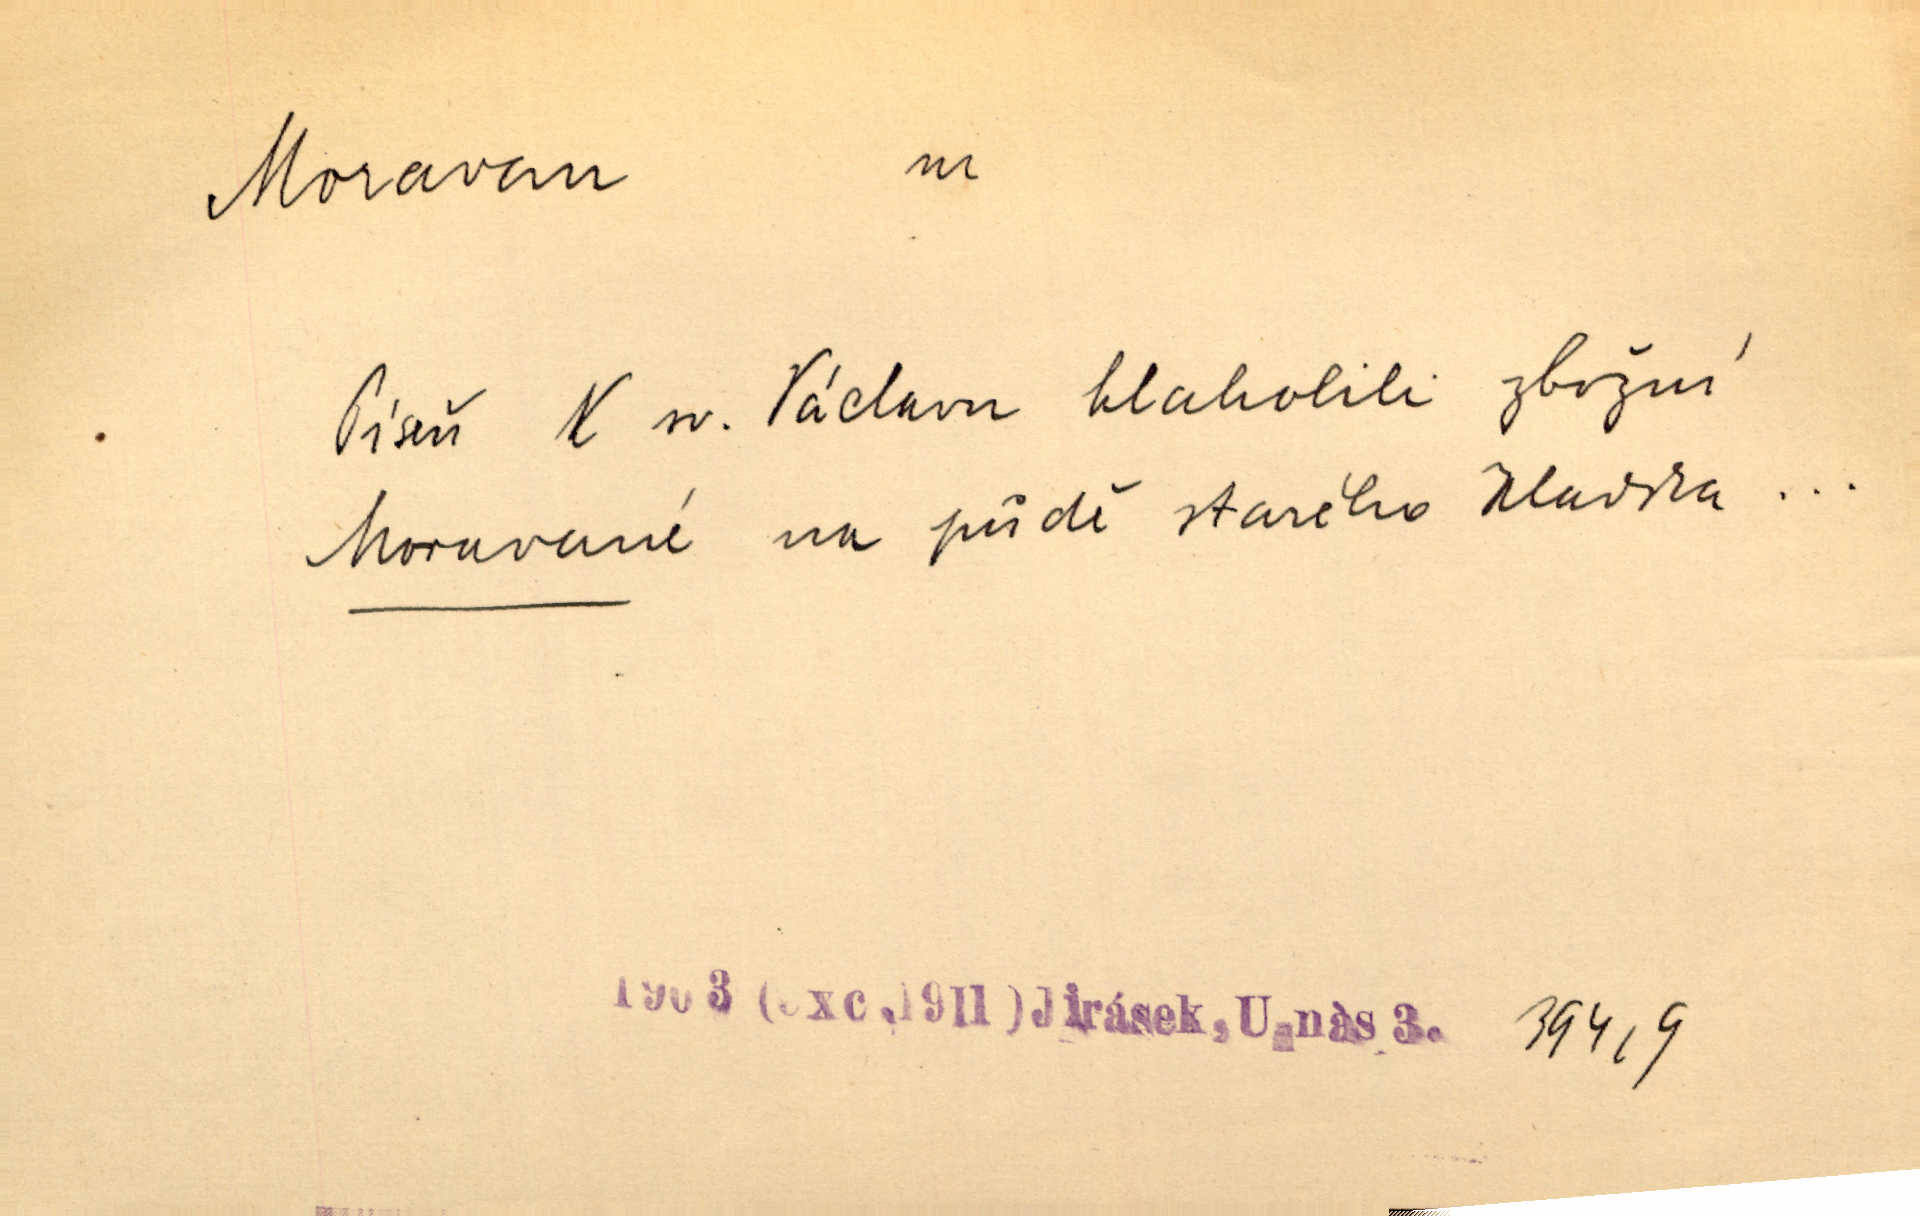 Moravan m
Píseň K sv. Václavu hlaholili zbožní
Moravané na půdě starého Kladska ...
1903 (exc.1911) Jirásek, U nás 3. 394,9